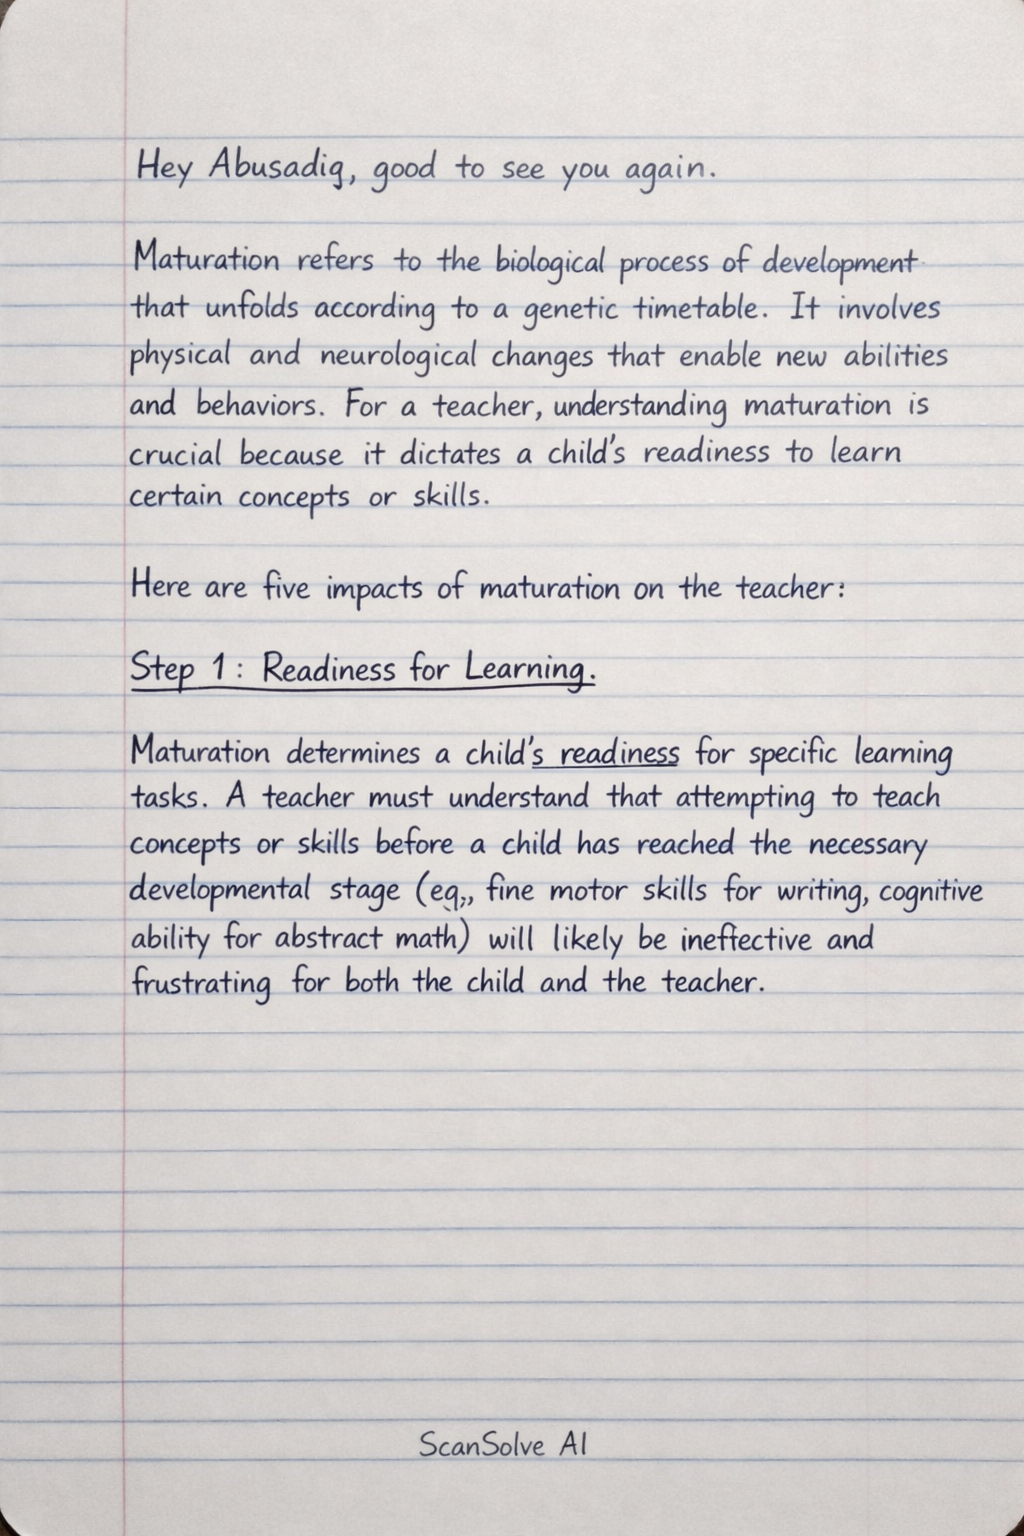 Hey Abusadig, good to see you again.
Maturation refers to the biological process of development
that unfolds according to a genetic timetable. It involves
physical and neurological changes that enable new abilities
and behaviors. For a teacher, understanding maturation is
crucial because it dictates a child's readiness to learn
certain concepts or skills.
Here are five impacts of maturation on the teacher:
Step 1: Readiness for Learning.
Maturation determines a child's readiness for specific learning
tasks. A teacher must understand that attempting to teach
concepts or skills before a child has reached the necessary
developmental stage (eg,, fine motor skills for writing, cognitive
ability for abstract math) will likely be ineffective and
frustrating for both the child and the teacher.
ScanSolve AI